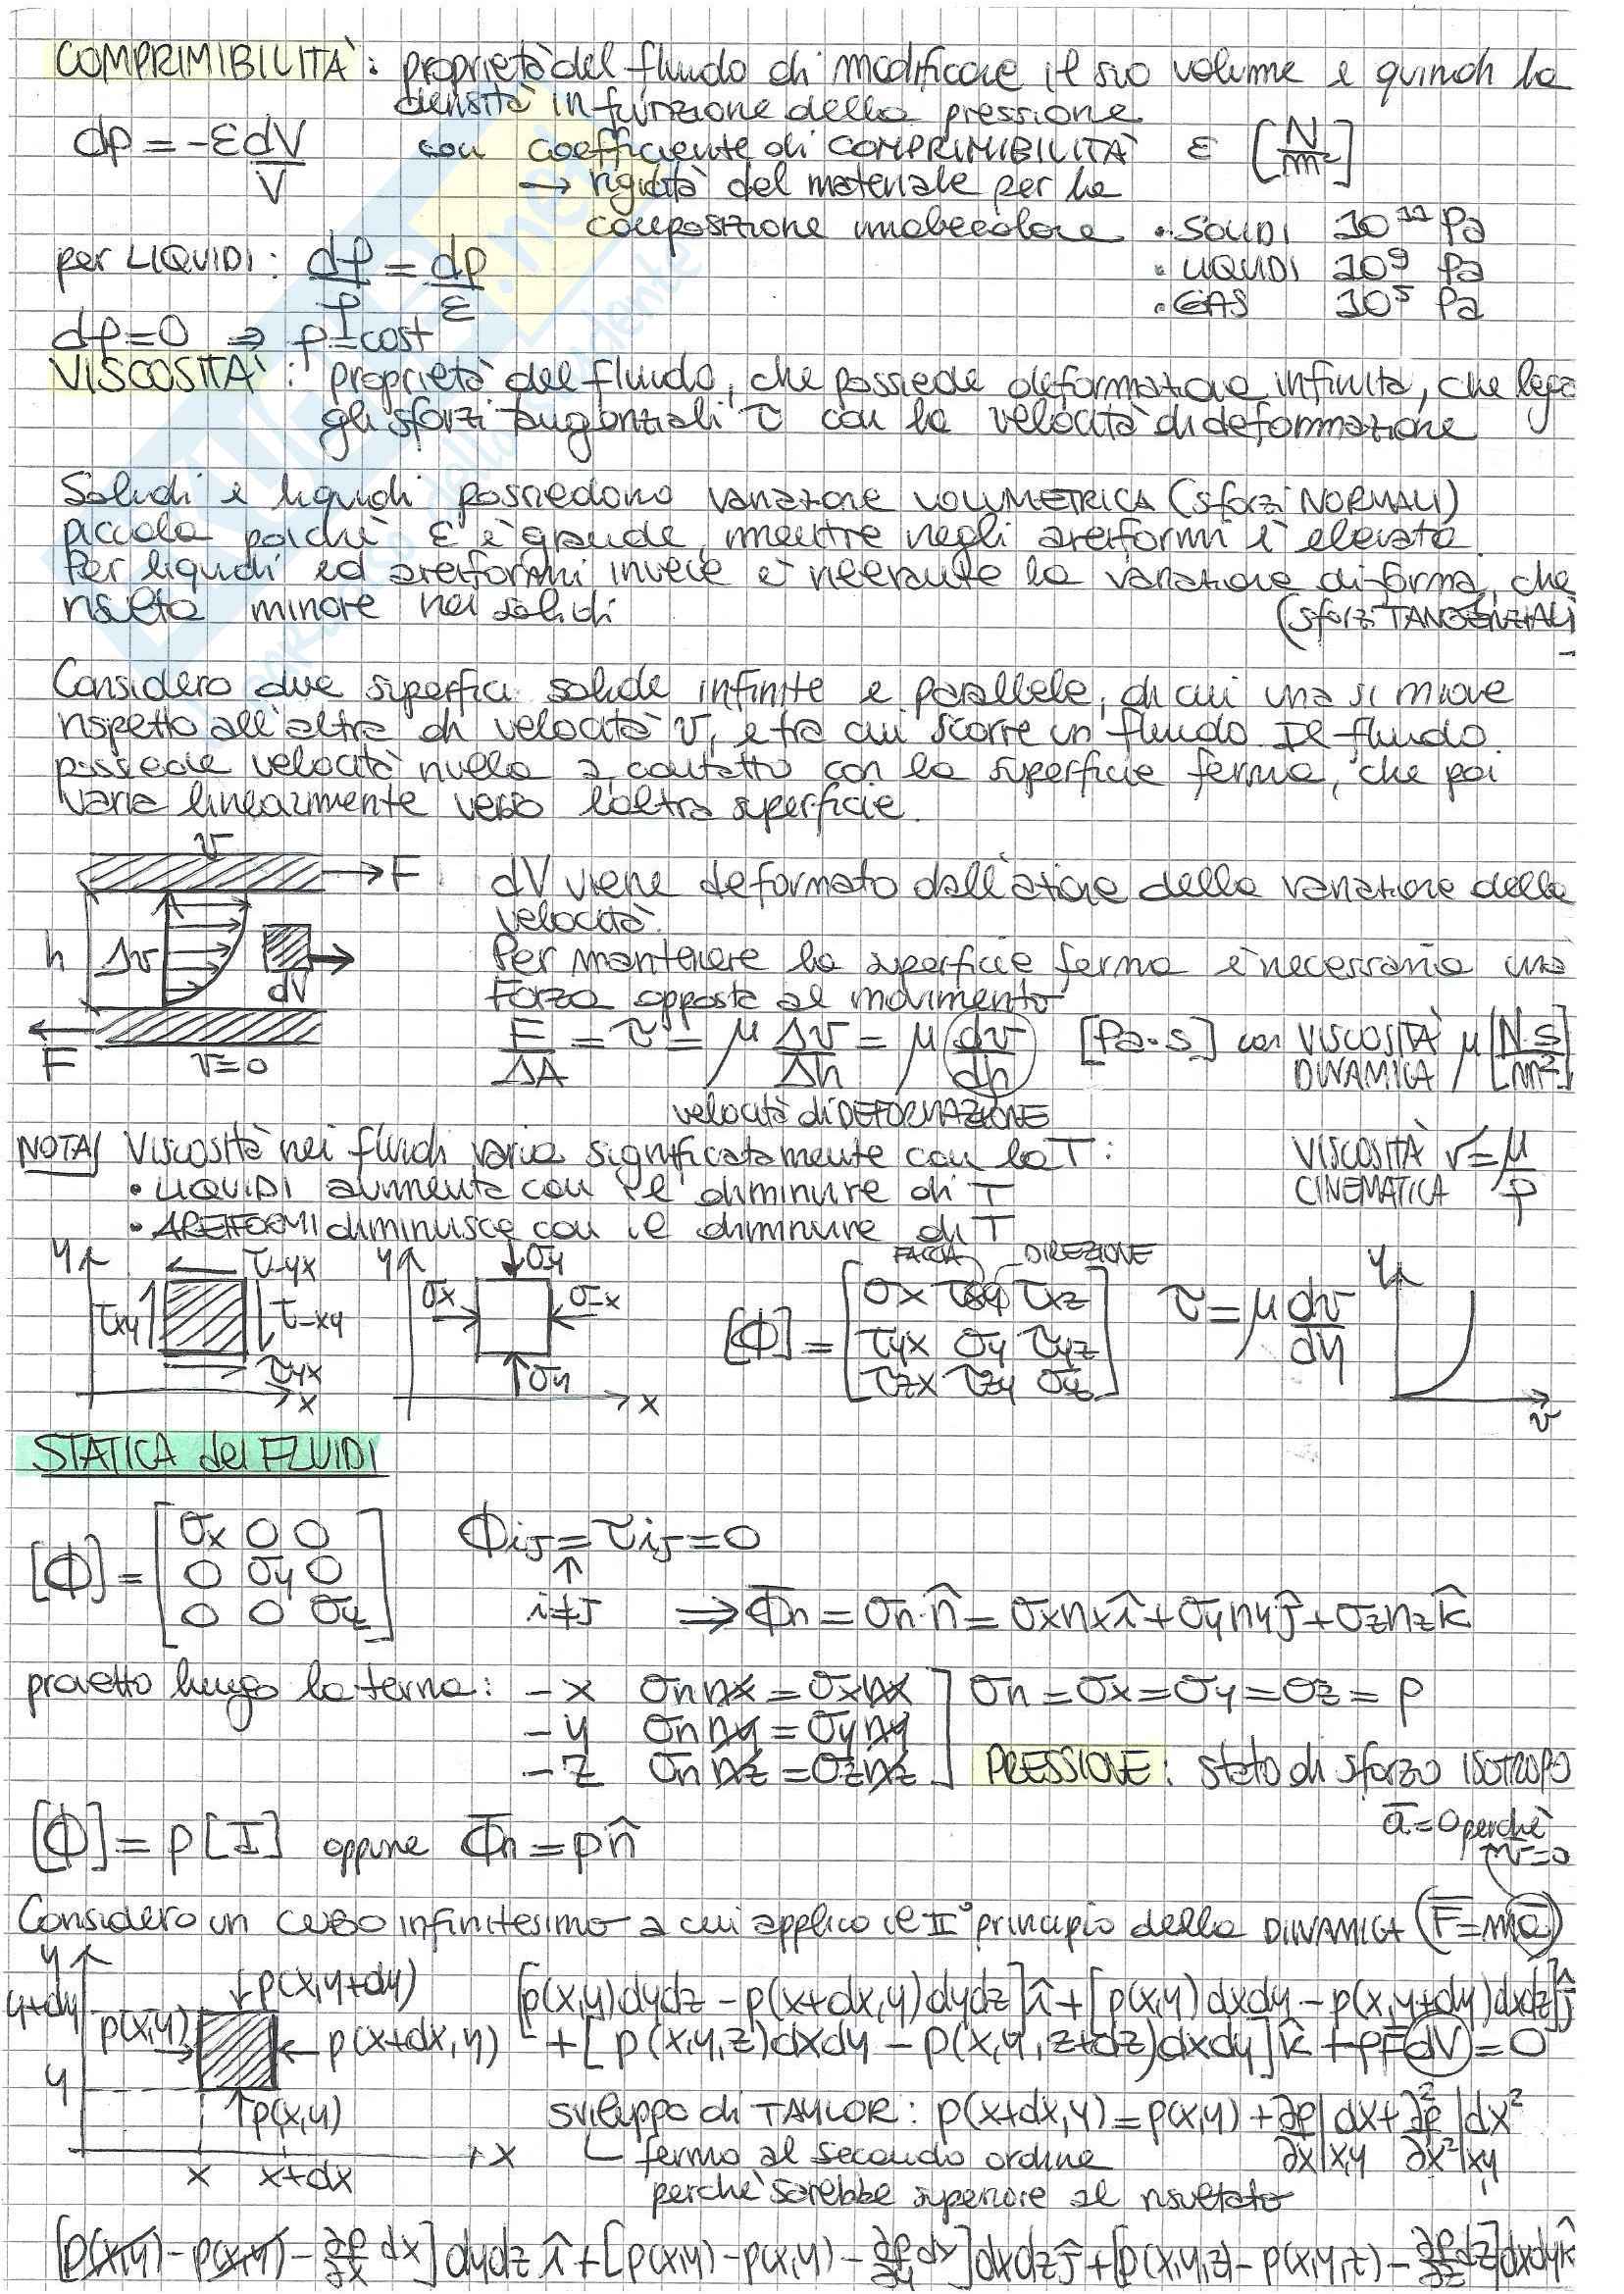 COMPRIMIBILITÀ: proprietà del fluido di modificare il suo volume e quindi la
densità in funzione della pressione
dp = -ε dV/V con coefficiente di COMPRIMIBILITÀ ε [N/m²]
→ rigidità del materiale per la
composizione molecolare
• SOLIDI 10¹¹ Pa
• LIQUIDI 10⁹ Pa
• GAS 10⁵ Pa
per LIQUIDI: dρ/ρ = dp/ε
dρ=0 ⇒ ρ=cost
VISCOSITÀ: proprietà del fluido, che possiede deformazione infinita, che lega
gli sforzi tangenziali τ con la velocità di deformazione
Solidi e liquidi possiedono variazione VOLUMETRICA (sforzi NORMALI)
piccola poichè ε è grande, mentre negli areiformi è elevata.
Per liquidi ed areiformi invece è rilevante la variazione di forma, che
risulta minore nei solidi (sforzi TANGENZIALI
Considero due superfici solide infinite e parallele, di cui una si muove
rispetto all'altra di velocità v, e tra cui scorre un fluido. Il fluido
possiede velocità nulla a contatto con la superficie ferma, che poi
varia linearmente verso l'altra superficie.
v
F
h Δv dV
F v=0
dV viene deformato dall'azione della variazione della
velocità.
Per mantenere la superficie ferma è necessaria una
Forza opposta al movimento
F/ΔA = τ = μ Δv/Δh = μ dv/dh [Pa·s] con VISCOSITÀ DINAMICA μ [N·s/m²]
velocità di DEFORMAZIONE
NOTA/ Viscosità nei fluidi varia significatamente con la T:
• LIQUIDI aumenta con il diminuire di T
• AREIFORMI diminuisce con il diminuire di T
VISCOSITÀ CINEMATICA ν = μ/ρ
y τ-yx τxy τ-xy τyx x
y σy σx σ-x σy x
FACCIA DIREZIONE
[Φ] = [σx τxy τxz
τyx σy τyz
τzx τzy σz]
τ = μ dv/dy
y
v
STATICA dei FLUIDI
[Φ] = [σx 0 0
0 σy 0
0 0 σz]
Φij = τij = 0
↑
i≠j ⇒ Φ̄n = σn·n̂ = σxnxî + σynyĵ + σznzk̂
proietto lungo la terna: - x σnnx = σxnx
- y σnny = σyny
- z σnnz = σznz
σn = σx = σy = σz = p
PRESSIONE: stato di sforzo ISOTROPO
[Φ] = p[I] oppure Φ̄n = pn̂
ā=0 perchè
v̄=0
Considero un cubo infinitesimo a cui applico il II° principio della DINAMICA (F̄=mā)
y
y+dy
y
p(x,y+dy)
p(x,y)
p(x+dx,y)
p(x,y)
x x+dx x
[p(x,y)dydz - p(x+dx,y)dydz]î + [p(x,y)dxdy - p(x,y+dy)dxdz]ĵ
+ [p(x,y,z)dxdy - p(x,y,z+dz)dxdy]k̂ + ρF̄dV = 0
sviluppo di TAYLOR: p(x+dx,y) = p(x,y) + ∂p/∂x|x,y dx + ∂²p/∂x²|xy dx²
fermo al secondo ordine
perchè sarebbe superiore al risultato
[p(x,y) - p(x,y) - ∂p/∂x dx]dydz î + [p(x,y) - p(x,y) - ∂p/∂y dy]dxdz ĵ + [p(x,y,z) - p(x,y,z) - ∂p/∂z dz]dxdy k̂